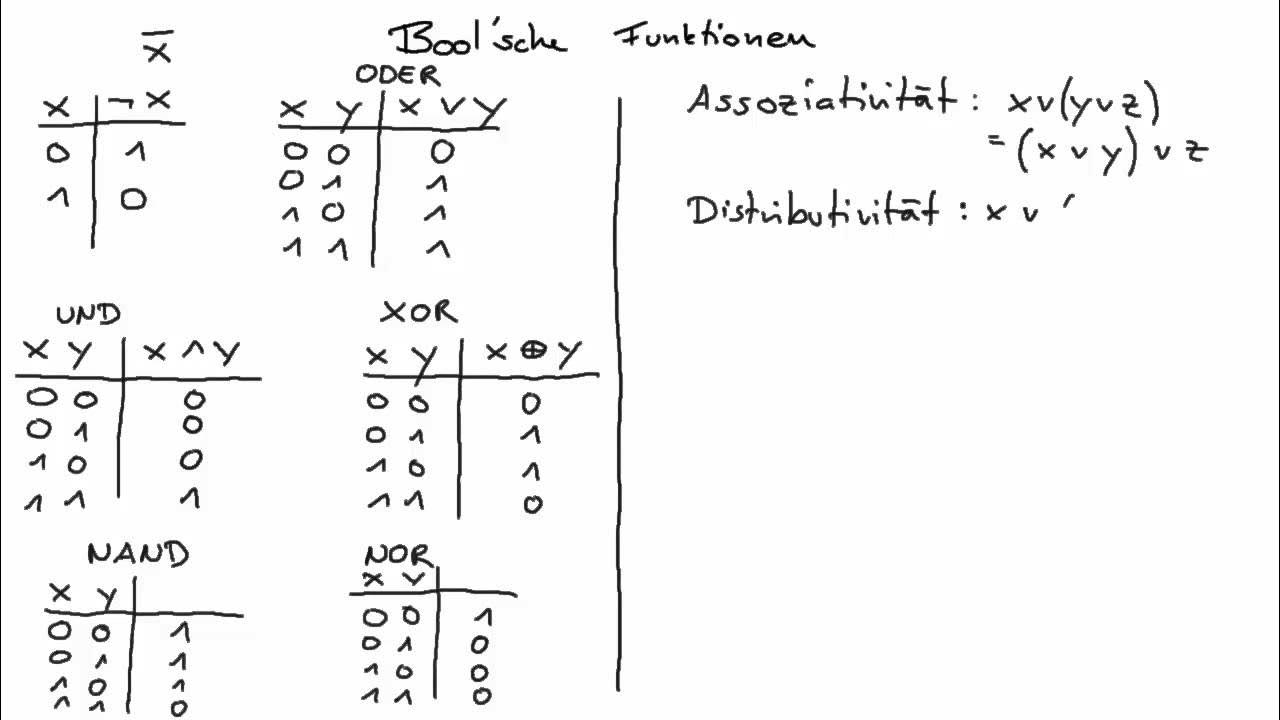 Bool'sche Funktionen
x̅
x ¬x
0 1
1 0
ODER
x y x ∨ y
0 0 0
0 1 1
1 0 1
1 1 1
UND
x y x ∧ y
0 0 0
0 1 0
1 0 0
1 1 1
XOR
x y x ⊕ y
0 0 0
0 1 1
1 0 1
1 1 0
NAND
x y
0 0 1
0 1 1
1 0 1
1 1 0
NOR
x y
0 0 1
0 1 0
1 0 0
1 1 0
Assoziativität : x∨(y∨z)
= (x ∨ y) ∨ z
Distributivität : x ∨